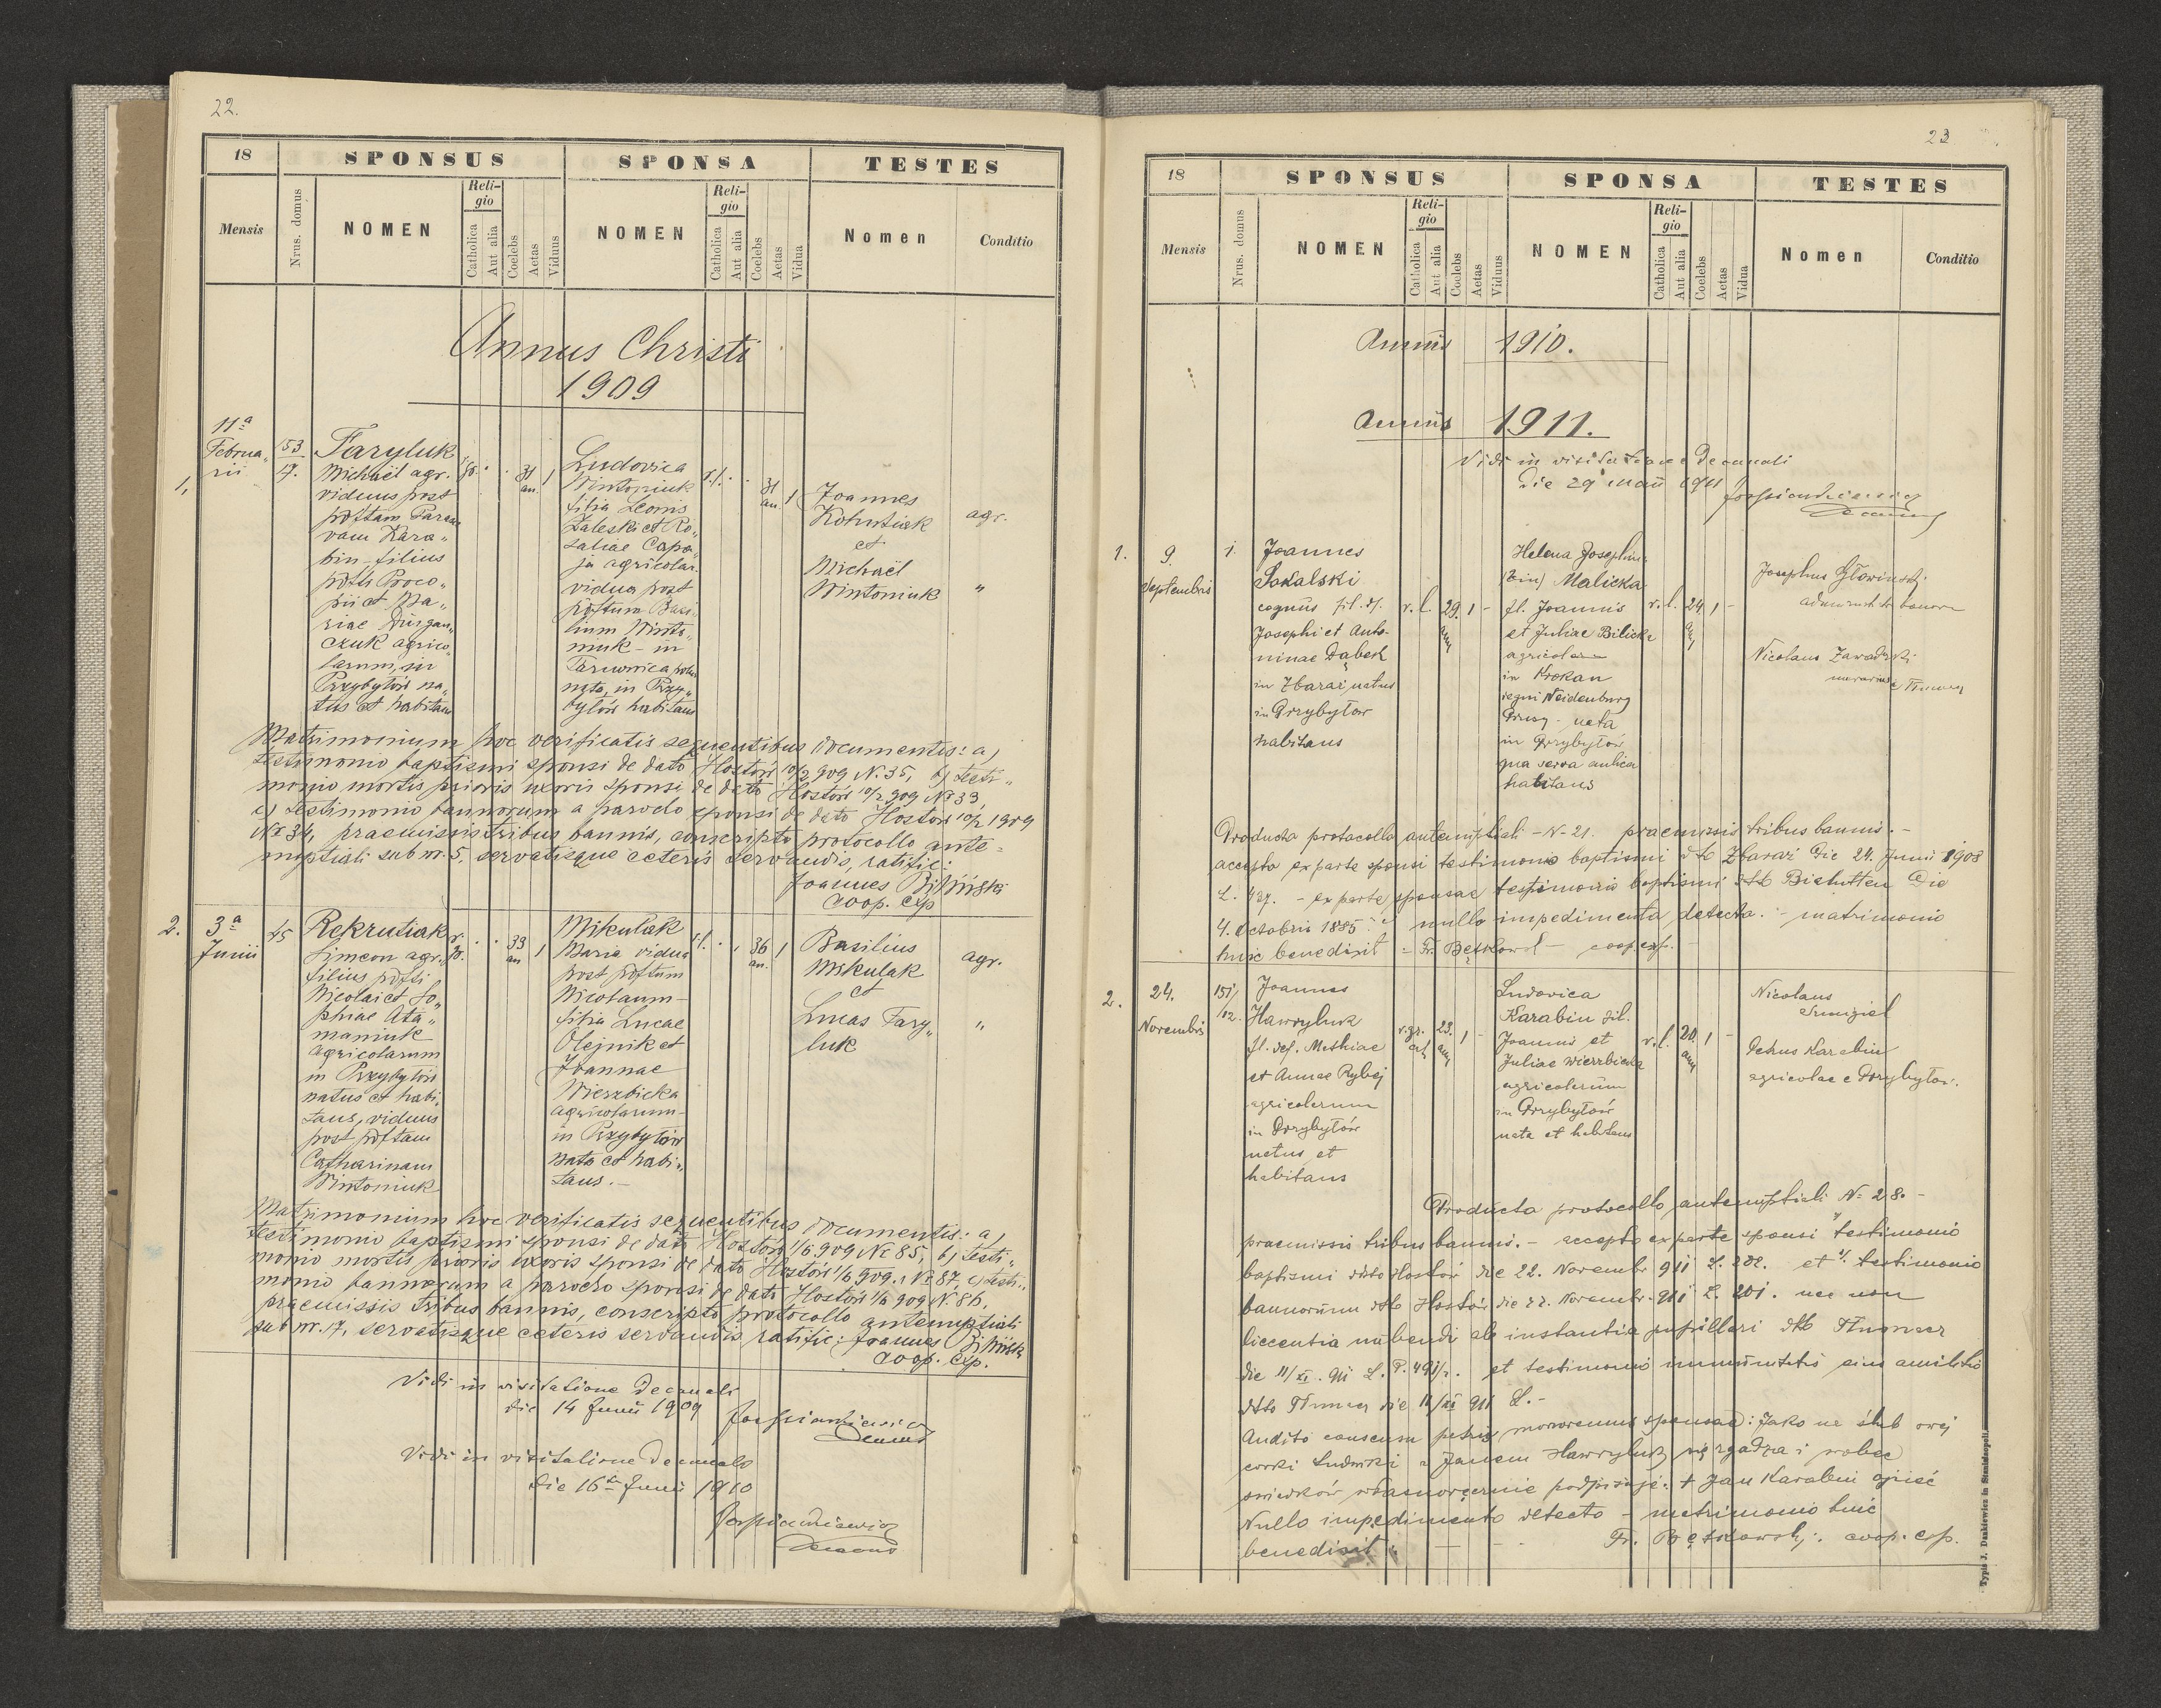 22.
18
SPONSUS
SPONSA
TESTES
Mensis
Nrus. domus
NOMEN
Religio
Catholica
Aut alia
Coelebs
Aetas
Viduus
NOMEN
Religio
Catholica
Aut alia
Coelebs
Aetas
Vidua
Nomen
Conditio
Annus Christi
1909
1,
11a
Februa„
rii
53
17.
Faryluk
Michael agr.
viduus post
pdftam Paras„
vam Kara„
bin - filius
pdfti Proco„
pii et Ma„
riae Durgan„
czuk agrico„
larum, in
Przybyłów na„
tus et habitans
r. gr.
31
an.
1
Ludovica
Wintoniuk
filia Leonis
Zaleski et Ro„
saliae Capa„
ja agricolar.
vidua post
pdftum Basi„
lium Winto„
niuk - in
Tarnowica polna
nata, in Przy„
byłów habitans
r. l.
31
an.
1
Joannes
Kohutiak
et
Michaël
Wintoniuk
agr.
„
Matrimonium hoc verificatis sequentibus documentis: a)
testimonio baptismi sponsi de dato Hostów 10/2 909 N. 35, b) testi„
monio mortis prioris uxoris sponsi de dato Hostów 10/2 909 No 33,
c) testimonio bannorum a parocho sponsi de dato Hostów 10/2 1909
No 34, praemissis tribus bannis, conscripto protocollo ante=
nuptiali sub nr. 5, servatisque ceteris servandis, ratific:
Joannes Biliński
coop. exp
2.
3a
Junii
45
Rekrutiak
Simeon agr.
filius pdfti
Nicolai et So„
phiae Ata„
maniuk
agricolarum
in Przybyłów
natus et habi„
tans, viduus
post pdftam
Catharinam
Wintoniuk
r. gr.
33
an
1
Mikulak
Maria vidua
post pdftum
Nicolaum -
filia Lucae
Olejnik et
Joannae
Wierzbicka
agricolarum -
in Przybyłów
nata et habi„
tans. -
r. l.
36
an.
1
Basilius
Mikulak
et
Lucas Fary„
luk
agr.
„
Matrimonium hoc verificatis sequentibus documentis: a)
testimonio baptismi sponsi de dato Hostów 1/6 909 No 85, b) testi„
monio mortis prioris uxoris sponsi de dato Hostów 1/6 909. No 87, c) testi„
monio bannorum a parocho sponsi de dato Hostów 1/6 909 N. 86,
praemissis tribus bannis, conscripto protocollo antenuptiali
sub nr. 17, servatisque ceteris servandis ratific: Joannes Biliński
coop. exp.
Vidi in visitatione decanali
die 14 Junii 1909
Vidi in visitatione decanali
die 16ta Junii 1910
23
18
SPONSUS
SPONSA
TESTES
Mensis
Nrus. domus
NOMEN
Religio
Catholica
Aut alia
Coelebs
Aetas
Viduus
NOMEN
Religio
Catholica
Aut alia
Coelebs
Aetas
Vidua
Nomen
Conditio
Annus 1910.
Annus 1911.
Vidi in visitatione decanali
die 29 Maii 1911
1.
9.
Septembris
1.
Joannes
Sokalski
fil. df.
Josephi et Anto-
ninae Dąbek
in Zbaraż natus
in Przybyłów
habitans
r. l.
29
1
-
Helena Josephina
Malicka
fl. Joannis
et Juliae Bilicka
agricolarum
in Krokau
regni Neidenburg
Prusy - nata
in Przybyłów
qua serva aulica
habitans
r. l.
24
1
-
Josephus Głowiński
Nicolaus Zawadzki
Producto protocollo antenuptiali - N- 21. praemissis tribus bannis. -
accepto ex parte sponsi testimonio baptismi dto Zbaraż die 24. Junii 1908
L. 427. - ex parte sponsae testimonio baptismi dto Bialutten die
4. Octobris 1885 nullo impedimento detecto. - matrimonio
huic benedixit - Fr. coop. exp.
2.
24.
Novembris
151/
12.
Joannes
Hawryluk
fl. def. Mathiae
et Annae Rybij
agricolarum
in Przybyłów
natus et
habitans
r. gr.
cat
23.
1
-
Ludovica
Karabin fil.
Joannis et
Juliae Wierzbicka
agricolarum
in Przybyłów
nata et habitans
r. l.
20
1
-
Nicolaus
Petrus Karabin
agricolae e Przybyłów.
Producto protocollo antenuptiali N- 28. -
praemissis tribus bannis. - accepto ex parte sponsi testimonio
baptismi ddto Hostów die 22. Novembr 911 L. 202. et testimonio
bannorum dto Hostów die 22. Novembr. 911 L. 201. nec non
licentia nubendi ab instantia pupillari dto Tłumacz
die 11/XI. 911 L. P. 491/2. et testimonio immunitatis
ddto Tłumacz die 11/XI 911 L. -
Audito consensu patris minorennis sponsae: Jako na ślub swej
córki Ludwiki z Janem Hawryluk się zgadza i wobec
świadków własnoręcznie podpisuje: + Jan Karabin ojciec
Nullo impedimento detecto - matrimonio huic
benedixit Fr. coop. exp.
Typis J. Dankiewicz in Stanislaopoli.